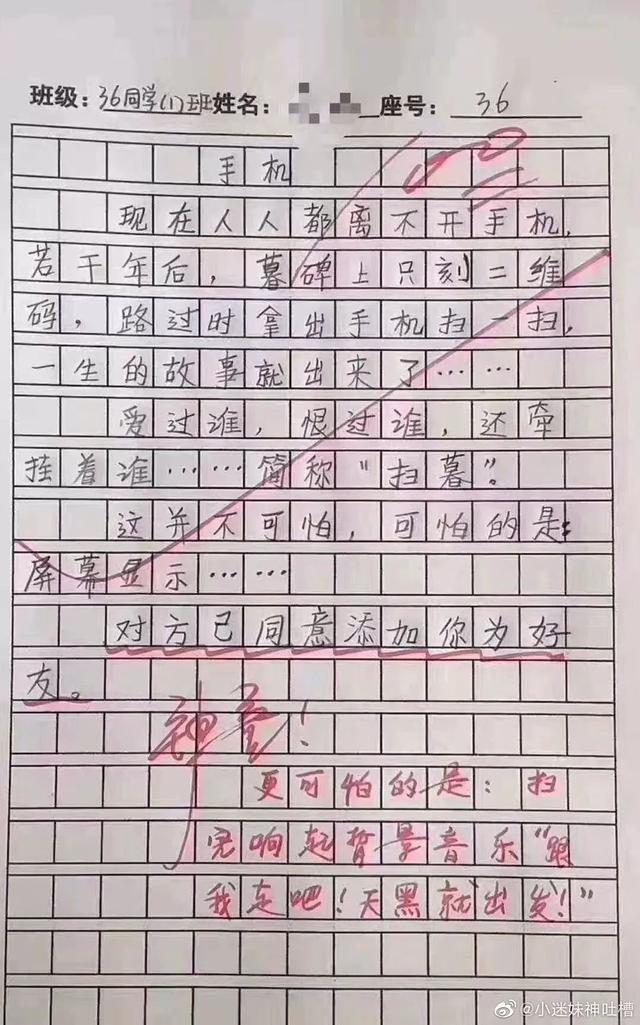 班级：36同学(1)班姓名： 座号：36
手机
现在人人都离不开手机，
若干年后，暮碑上只刻二维
码，路过时拿出手机扫一扫，
一生的故事就出来了……
爱过谁，恨过谁，还牵
挂着谁……简称“扫暮”。
这并不可怕，可怕的是：
屏幕显示……
对方已同意添加你为好
友。
神童！
更可怕的是：扫
完响起背景音乐“跟
我走吧！天黑就出发！”
@小迷妹神吐槽